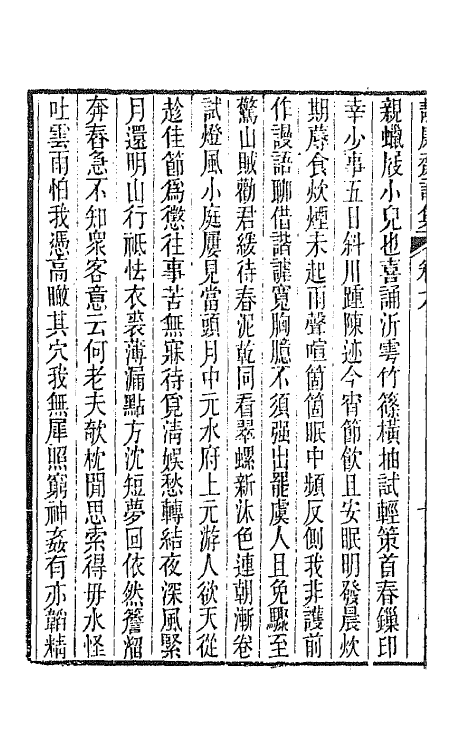 親蠟屐小兒也喜誦沂雩竹篠橫抽試輕策首春鑞印
幸少事五日斜川踵陳迹今宵節飲且安眠明發晨炊
期蓐食炊煙未起雨聲喧箇箇眠中頻反側我非護前
作謾語聊借諧謔寬胸臆不須强出罷虞人且免驟至
驚山賊勸君緩待春泥乾同看翠螺新沐色連朝漸卷
試燈風小庭屢見當頭月中元水府上元游人欲天從
趁佳節爲懲往事苦無寐待覓淸娛愁轉結夜深風緊
月還明山行祗怯衣裘薄漏點方沈短夢回依然簷溜
奔舂急不知衆客意云何老夫欹枕閒思索得毋水怪
吐雲雨怕我憑高瞰其穴我無犀照窮神姦有亦韜精